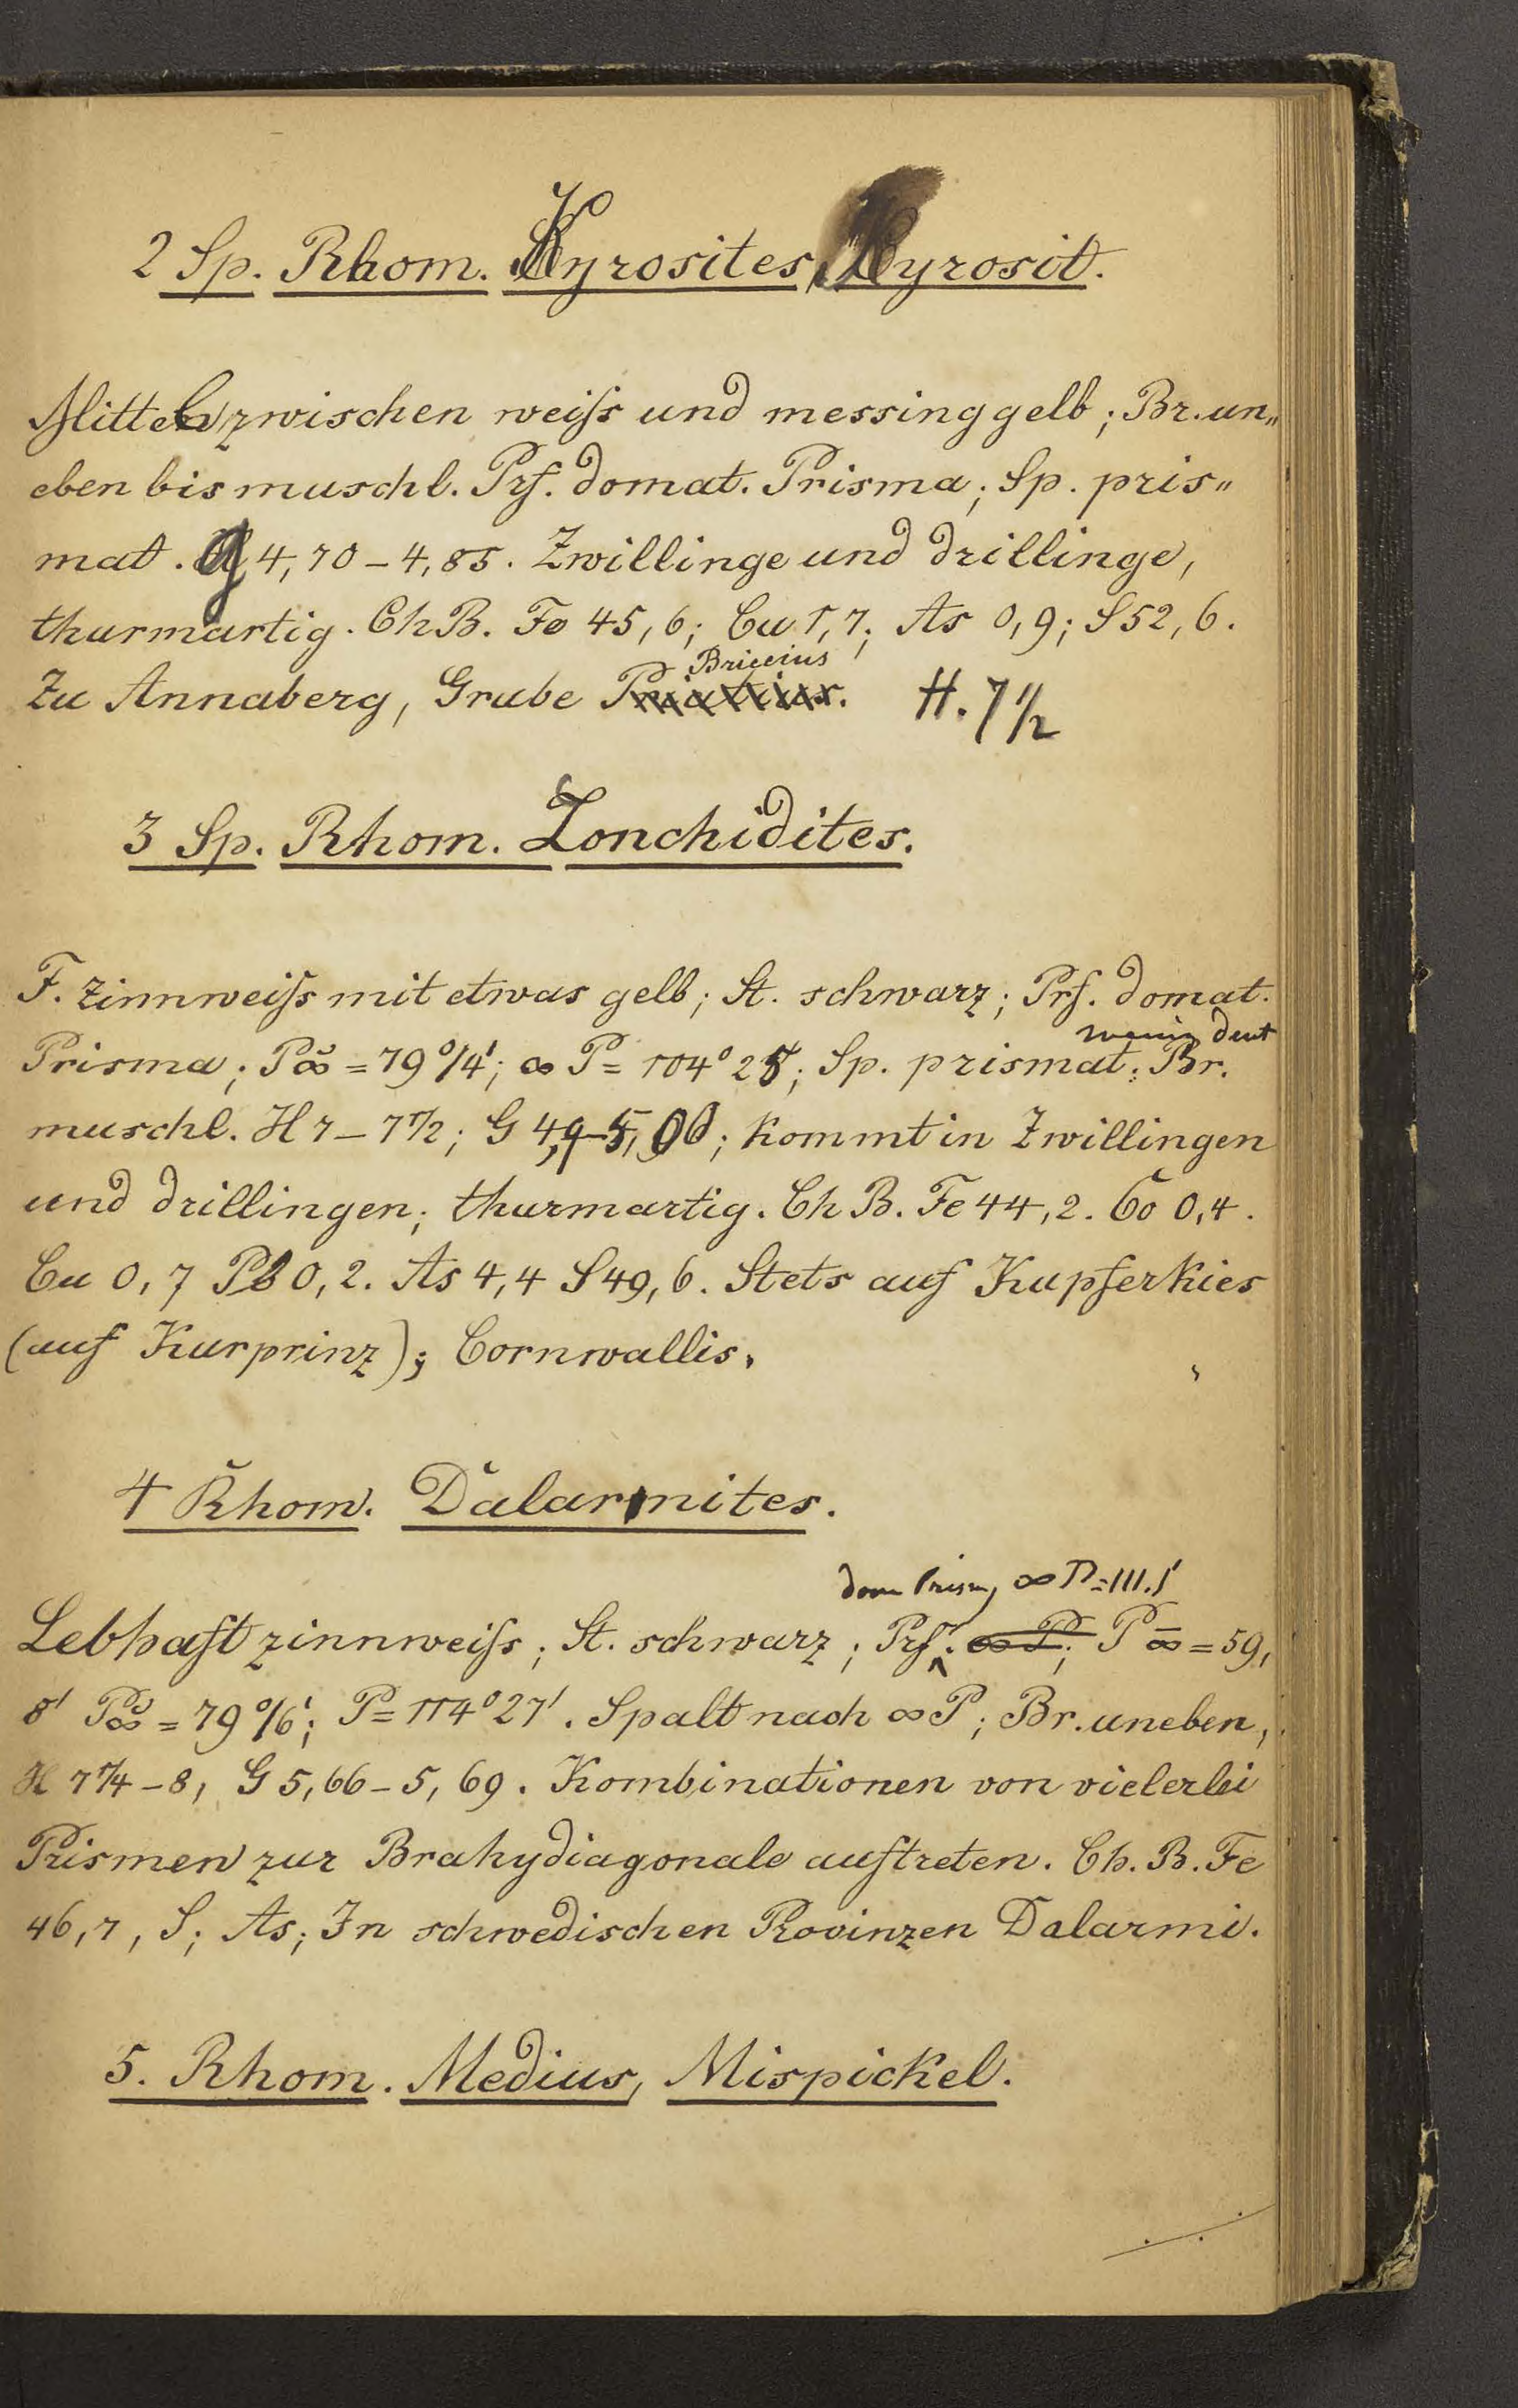 2 Sp. Rhom. Kyrosites, Kyrosit.
Mittel zwischen weiſs und messinggelb; Br. un„
eben bis muschl. Prf. domat. Prisma; Sp. pris„
mat. G 4,70–4,85. Zwillinge und drillinge,
thurmartig. Ch B. Fe 45,6; Cu 1,7; As 0,9; S 52,6.
Briccius
Zu Annaberg, Grube H. 7 1/2
3 Sp. Rhom. Lonchidites.
F. zinnweiſs mit etwas gelb; St. schwarz; Prf. domat.
wenig deut
Prisma; P∞̆ = 79°14'; ∞ P = 104°25; Sp. prismat; Br.
muschl. H 7–7 1/2; G 4,9–5,00; kommt in Zwillingen
und drillingen; thurmartig. Ch B. Fe 44,2. Co 0,4.
Cu 0,7 Pb 0,2. As 4,4 S 49,6. Stets auf Kupferkies
(auf Kurprinz); Cornwallis.
4 Rhom. Dalarmites.
dom Prism, ∞ P = 111.1'
Lebhaft zinnweiſs; St. schwarz; Prf. ∞ P; P∞̄ = 59,
8' P∞̆ = 79°16'; P = 114°27'. Spalt nach ∞P; Br. uneben,
H 7 1/4–8, G 5,66–5,69. Kombinationen von vielerlei
Prismen zur Brakydiagonale auftreten. Ch. B. Fe
46,7, S; As; In schwedischen Provinzen Dalarmi.
5. Rhom. Medius, Mispickel.